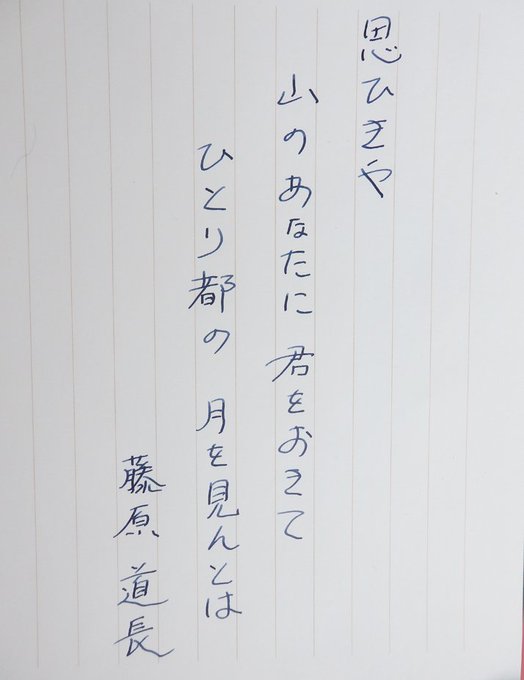 思ひきや
山のあなたに 君をおきて
ひとり都の 月を見んとは
藤原 道長